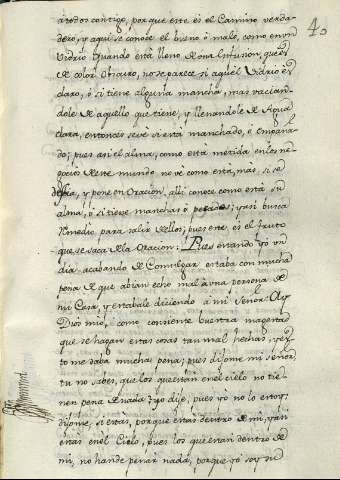 todos contigo, porque este es el Camino verda
dero, y aqui se conoce el bueno ô malo, como en vn
Vidrio quando està lleno de
de color Obscuro, no se parece si aquel Vidrio es
claro, ô si tiene alguna mancha, mas vacian
dole de aquello que tiene, y llenandole de Agua
clara, entonces se vè si està manchado, ô
do; pues asi el alma, como està metida en los ne
gocios de este mundo no vè como està, mas, si se
y pone en Oracion, alli conoce como està su
alma, ô si tiene manchas ô pecados; y asi busca
Remedio para salir de ellos; pues este, es el fruto
que se saca de la Oracion: Pues estando yo vn
dia acabando de Comulgar estaba con mucha
pena de que abian echo mal à vna persona de
mi Casa, y estabale diciendo à mi Señor: Ay
Dios mio, como consiente buestra magestad
que se hagan estas cosas tan mal hechas, y es
to me daba mucha pena; pues dijome mi señor
tu no sabes, que los que estàn en el cielo no tie
nen pena de nada? yo dije, pues yo no lo estoy;
dijome, si estàs, porque estàs dentro de mi, y asi
estàs en el Cielo, pues los que estàn dentro de
mi, no han de penar nada, porque yo soy su